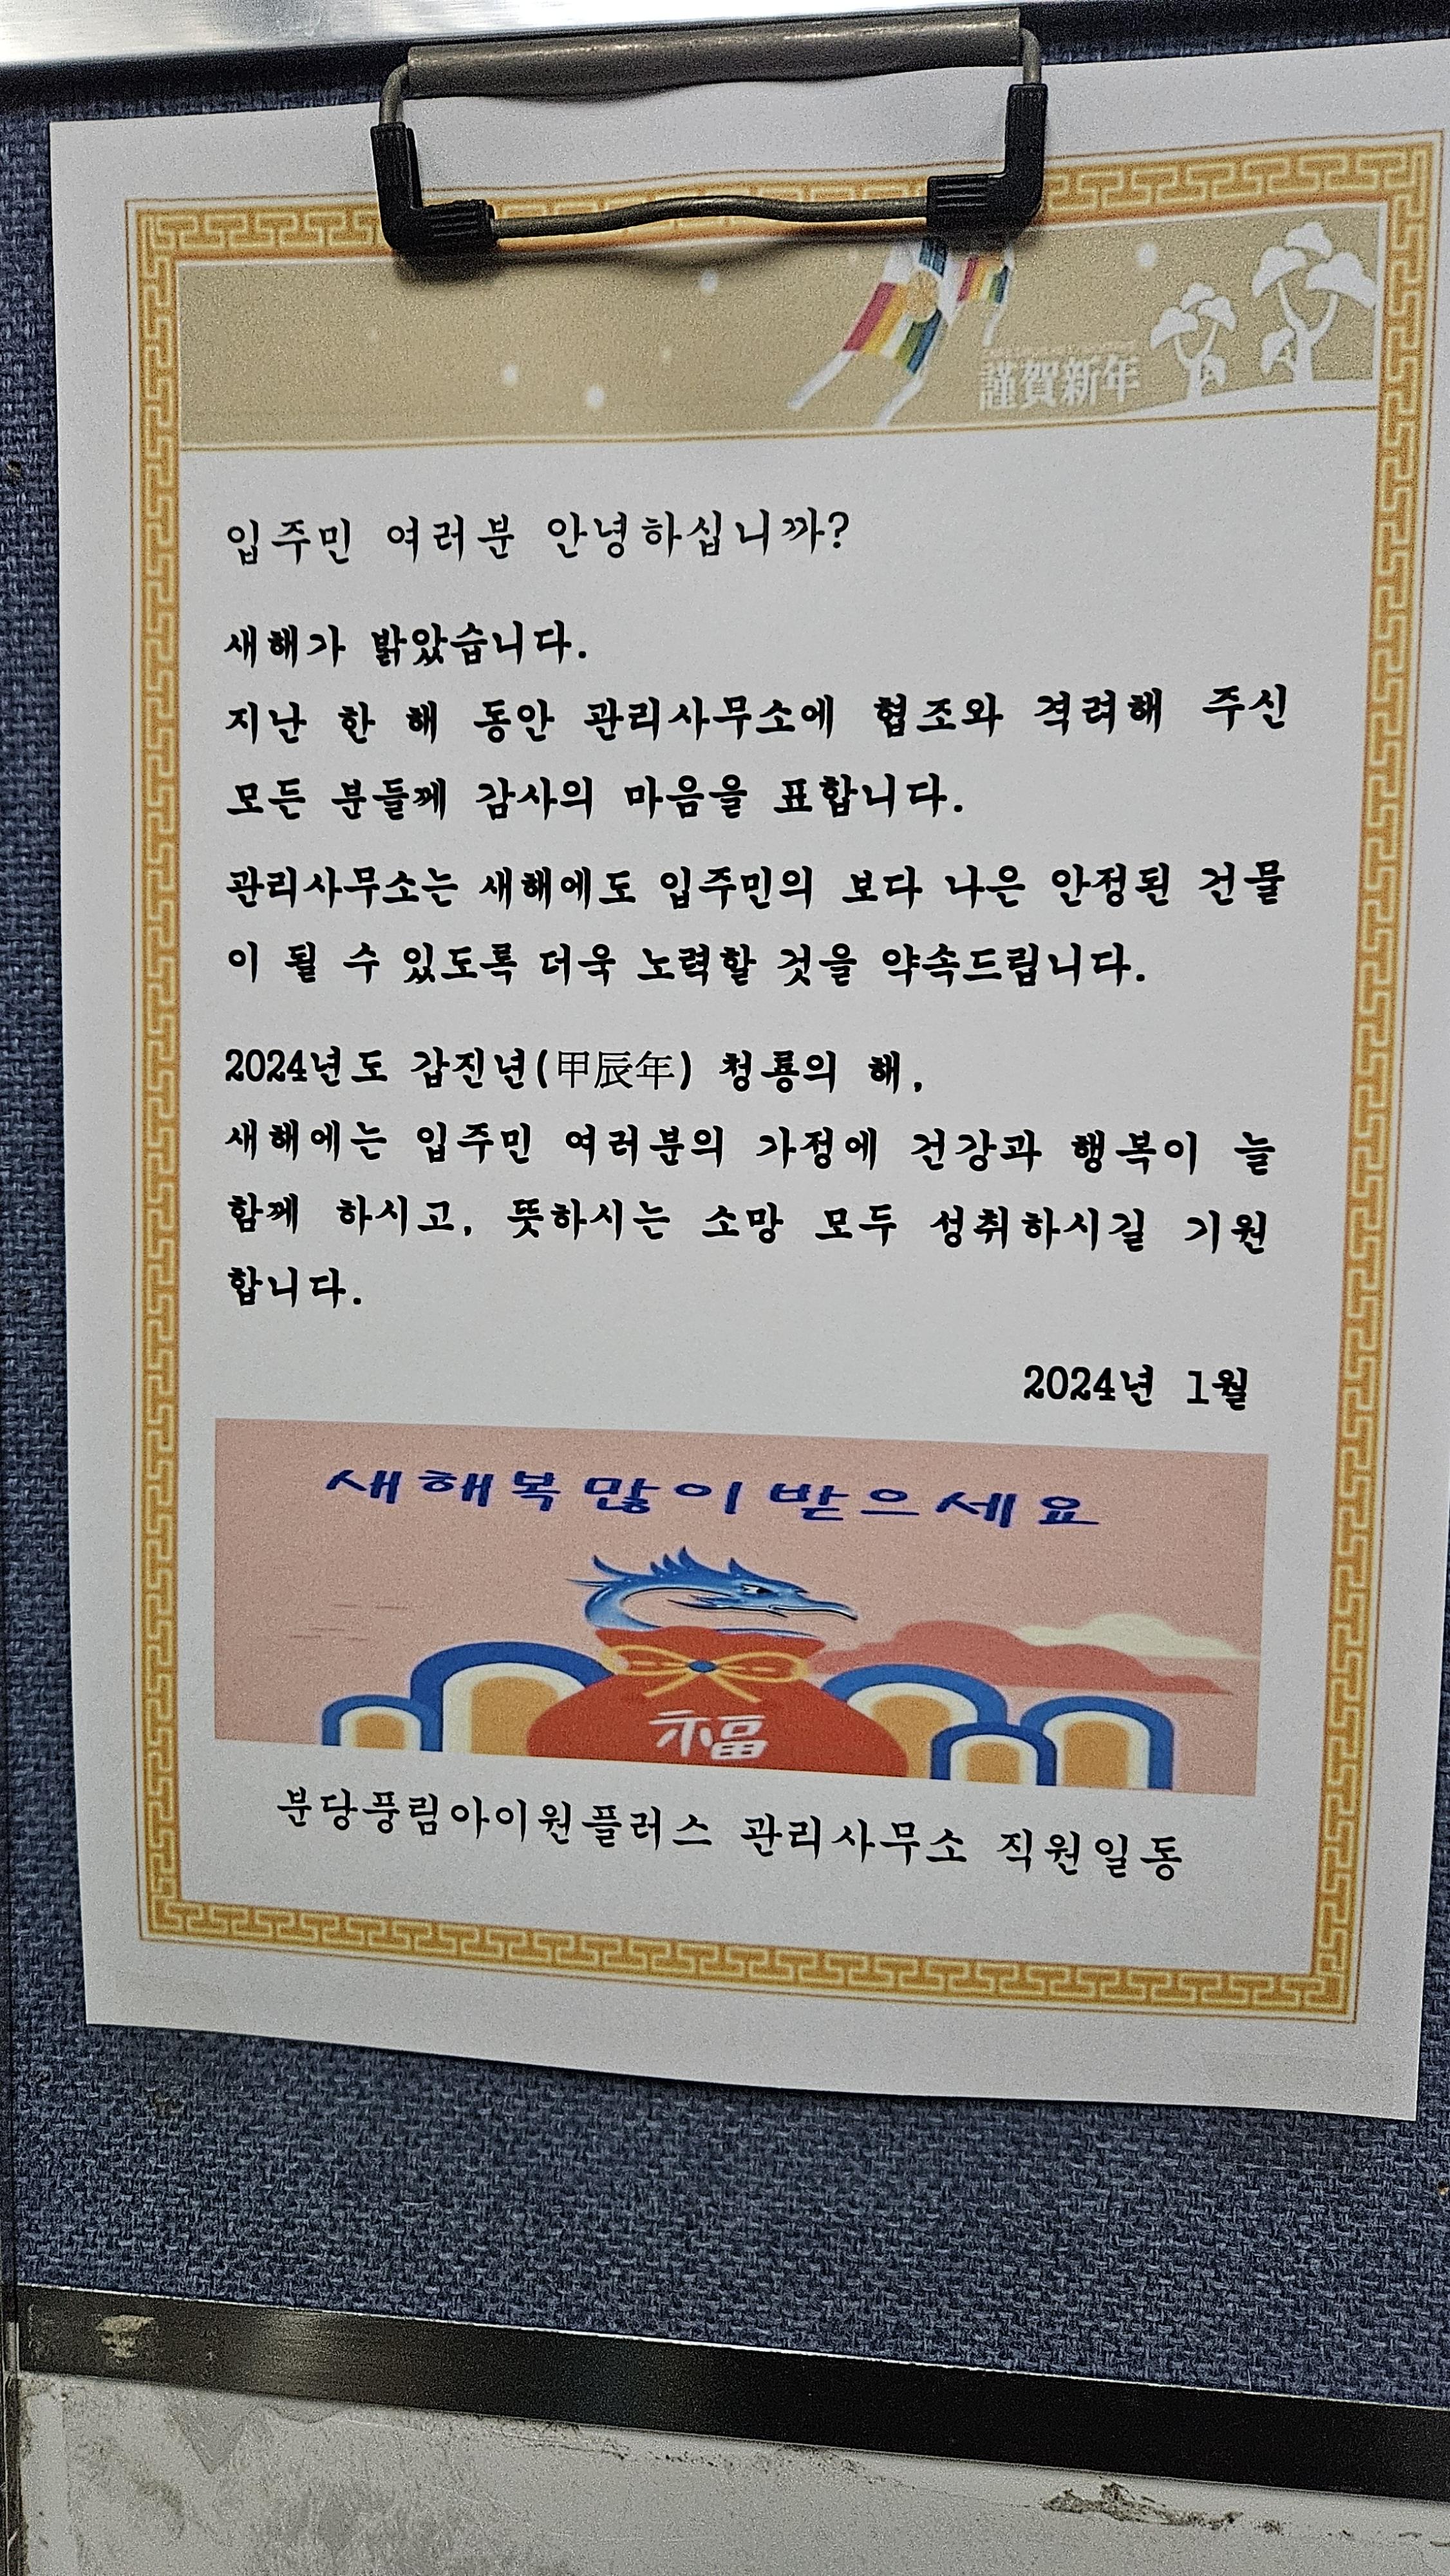 謹賀新年
입주민 여러분 안녕하십니까?
새해가 밝았습니다.
지난 한 해 동안 관리사무소에 협조와 격려해 주신
모든 분들께 감사의 마음을 표합니다.
관리사무소는 새해에도 입주민의 보다 나은 안정된 건물
이 될 수 있도록 더욱 노력할 것을 약속드립니다.
2024년도 갑진년(甲辰年) 청룡의 해,
새해에는 입주민 여러분의 가정에 건강과 행복이 늘
함께 하시고, 뜻하시는 소망 모두 성취하시길 기원
합니다.
2024년 1월
새해복많이받으세요
福
분당풍림아이원플러스 관리사무소 직원일동